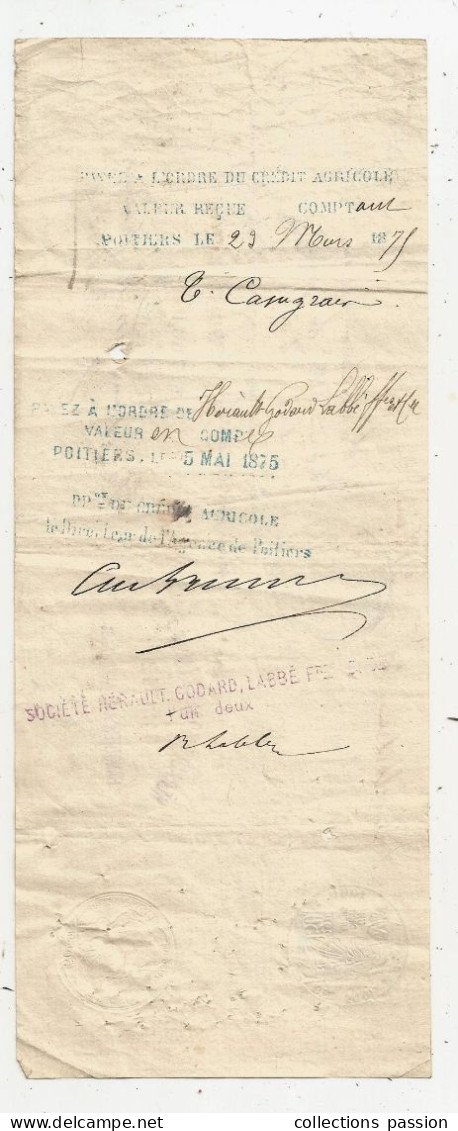 PAYEZ A L'ORDRE DU CRÉDIT AGRICOLE
VALEUR REÇUE COMPTant
POITIERS LE 23 Mars 1875
PAYEZ À L'ORDRE DE Hérault Godard Labbé ffres et Cie
VALEUR en COMPte
POITIERS, LE 5 MAI 1875
PPon DU CRÉDIT AGRICOLE
le Directeur de l'Agence de Poitiers
SOCIÉTÉ HÉRAULT, GODARD, LABBÉ
l'un deux
R Labbé
delcampe.net
collections passion